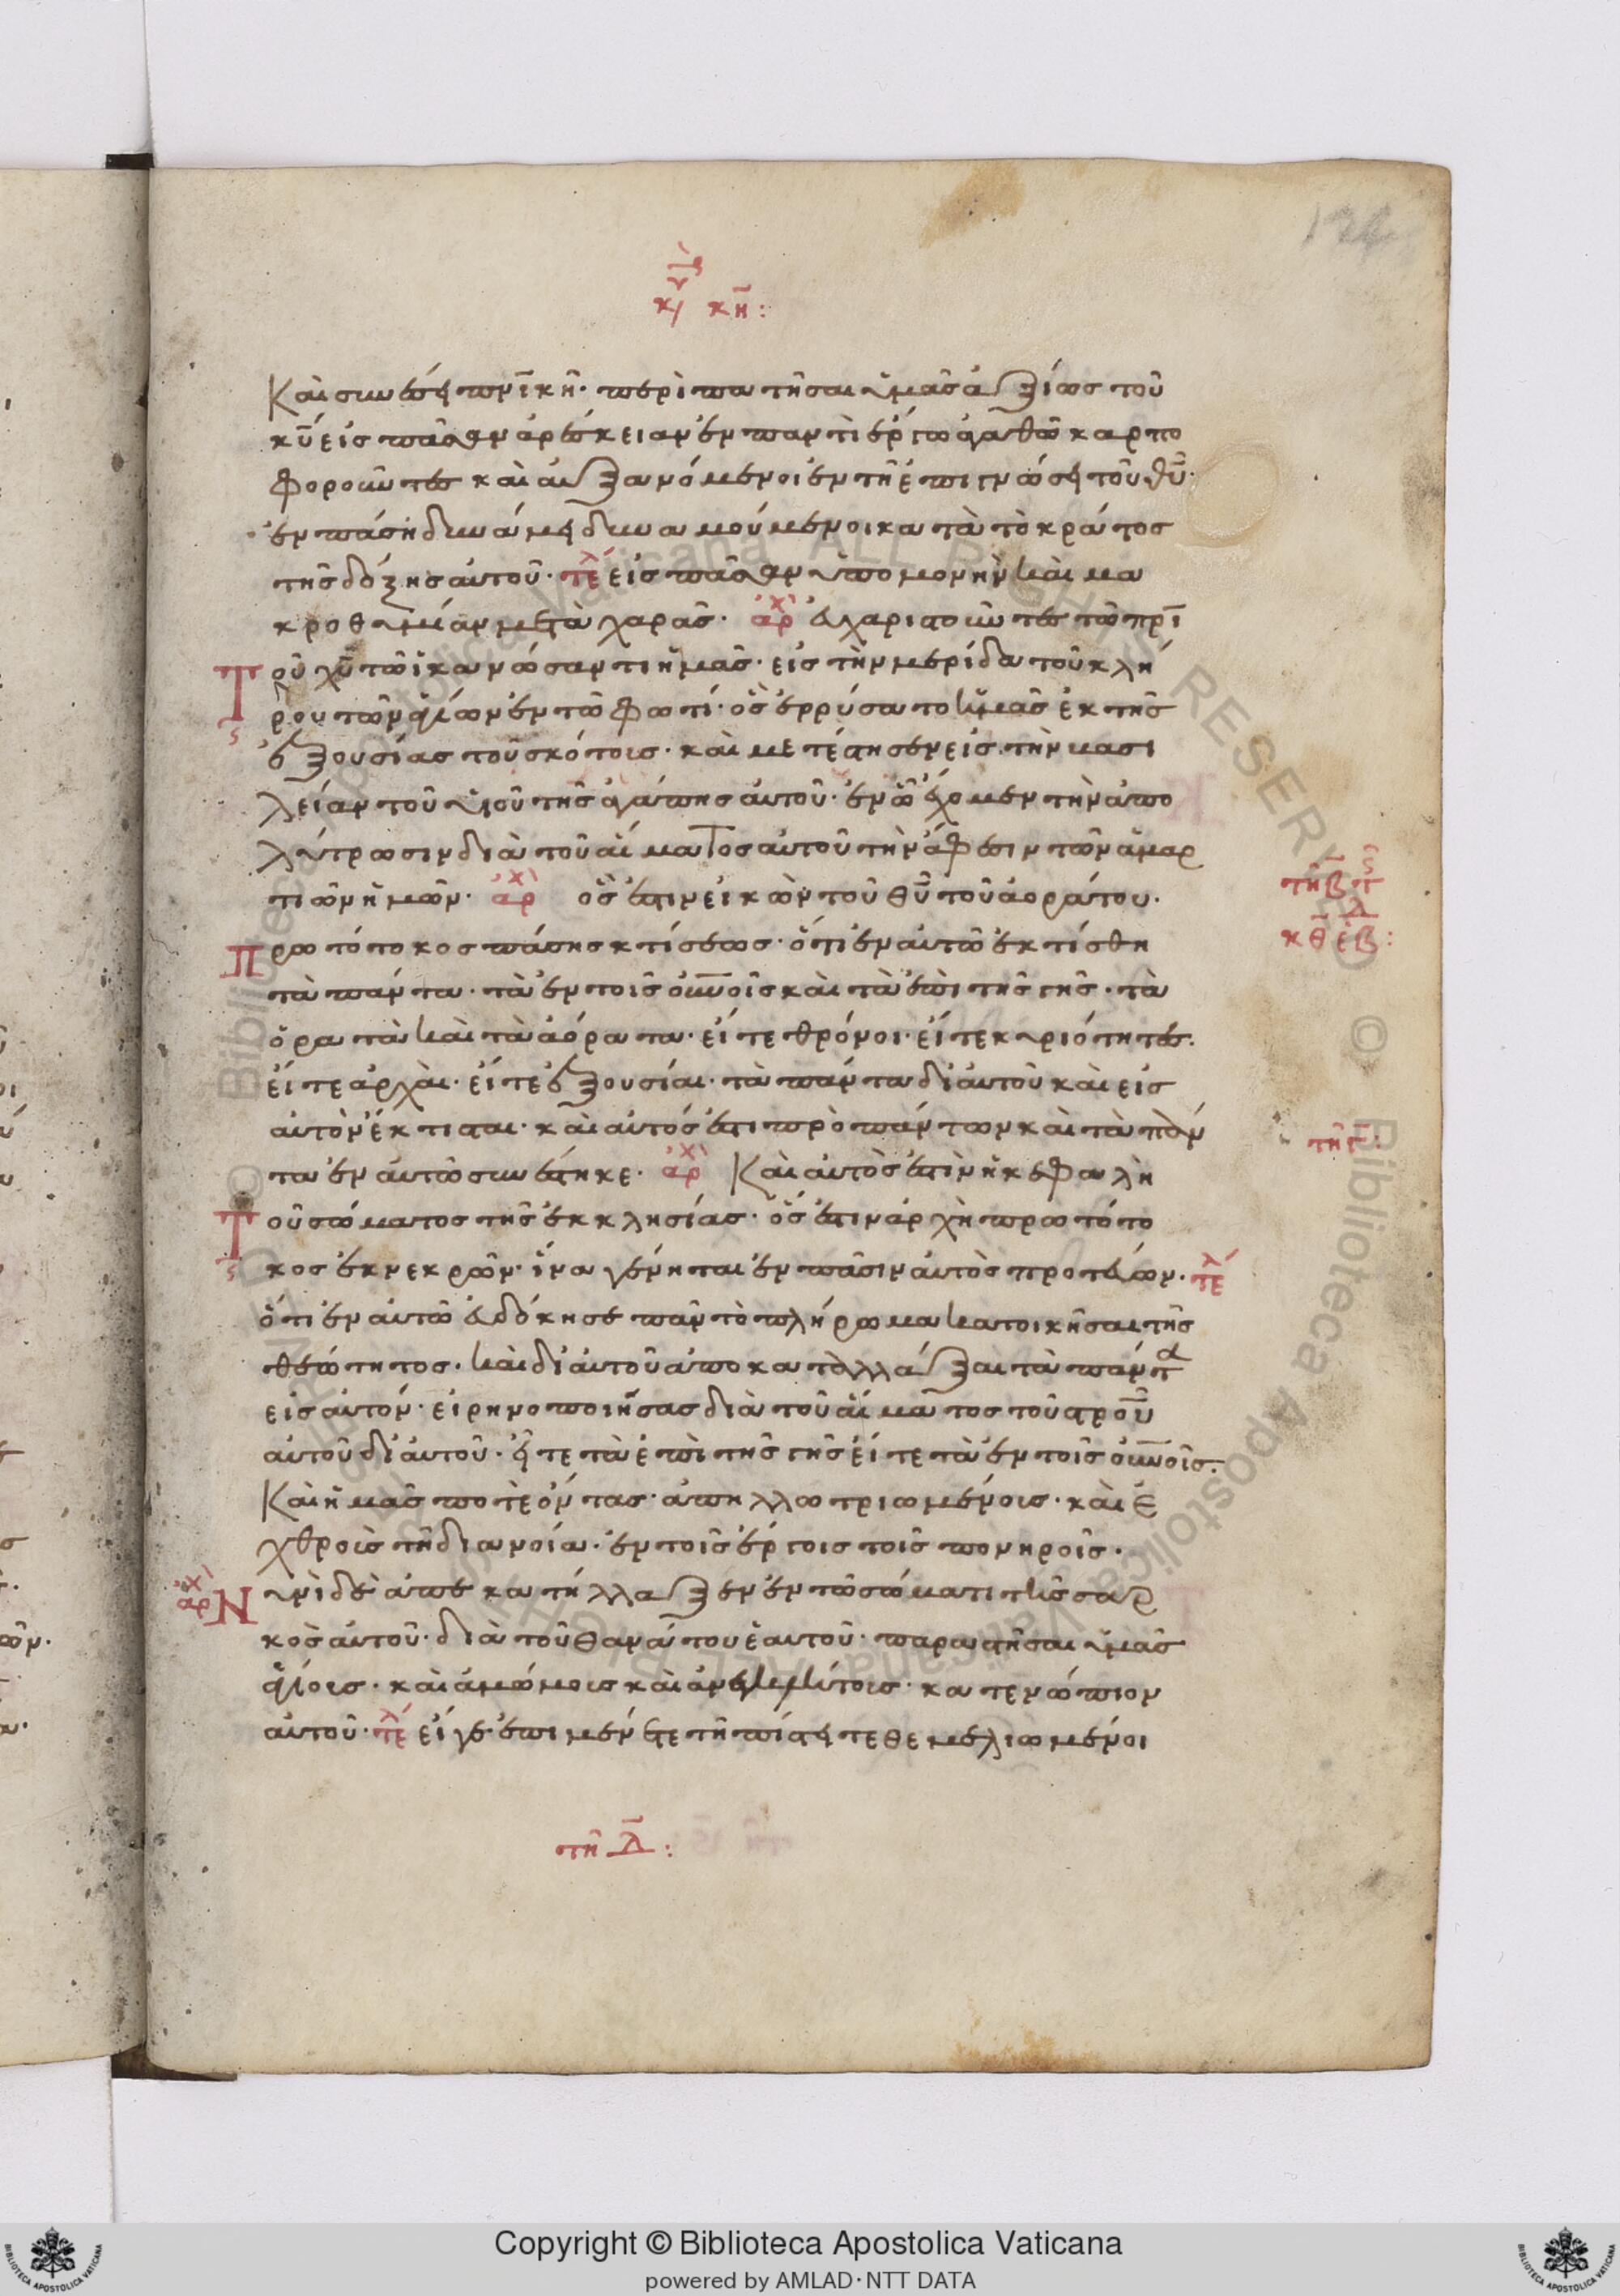 κυ κη:
Και συνέσει πνικῆ· περιπατῆσαι ὑμᾶς ἀξίως τοῦ
κυ εἰς πᾶσαν ἀρέσκειαν ἐν παντὶ ἔργω ἀγαθῶ καρπο
φοροῦντες καὶ αὐξανόμενοι ἐν τῆ ἐπιγνώσει τοῦ θυ·
ἐν πάση δυνάμει δυναμούμενοι κατὰ τὸ κράτος
τῆς δόξης αὐτοῦ· τελ εἰς πᾶσαν ὑπομονὴν καὶ μα
κροθυμίαν μετὰ χαρᾶς· ἀρχ εὐχαριστοῦντες τῶ πρι
Τοῦ χυ τῶ ἱκανώσαντι ἡμᾶς· εἰς τὴν μερίδα τοῦ κλή
ρου τῶν ἁγίων ἐν τῶ φωτί· ὃς ἐρρύσατο ἡμᾶς ἐκ τῆς
ἐξουσίας τοῦ σκότους· καὶ μετέστησεν εἰς τὴν βασι
λείαν τοῦ υἱοῦ τῆς ἀγάπης αὐτοῦ· ἐν ὧ ἔχομεν τὴν ἀπο
λύτρωσιν διὰ τοῦ αἵματος αὐτοῦ τὴν ἄφεσιν τῶν ἁμαρ
τιῶν ἡμῶν· ἀρχ ὅς ἐστιν εἰκὼν τοῦ θυ τοῦ ἀοράτου·
Πρωτότοκος πάσης κτίσεως· ὅτι ἐν αὐτῶ ἐκτίσθη
τὰ πάντα· τὰ ἐν τοῖς οὐνοῖς καὶ τὰ ἐπὶ τῆς γῆς· τὰ
ὁρατὰ καὶ τὰ ἀόρατα· εἴτε θρόνοι· εἴτε κυριότητες·
εἴτε ἀρχαὶ· εἴτε ἐξουσίαι· τὰ πάντα δι αὐτοῦ καὶ εἰς
αὐτὸν ἔκτισται· καὶ αὐτός ἐστι πρὸ πάντων καὶ τὰ πάν
τα ἐν αὐτῶ συνέστηκε· ἀρχ Καὶ αὐτὸς ἐστὶν ἡ κεφαλὴ
Τοῦ σώματος τῆς ἐκκλησίας· ὅς ἐστιν ἀρχὴ πρωτότο
κος ἐκ νεκρῶν· ἵνα γένηται ἐν πᾶσιν αὐτὸς πρωτεύων· τελ
ὅτι ἐν αὐτῶ εὐδόκησε πᾶν τὸ πλήρωμα κατοικῆσαι τῆς
θεότητος· καὶ δι αὐτοῦ ἀποκαταλλάξαι τὰ πάντα
εἰς αὐτόν· εἰρηνοποιήσας διὰ τοῦ αἵματος τοῦ στρου
αὐτοῦ δι αὐτοῦ· εἴτε τὰ ἐπὶ τῆς γῆς εἴτε τὰ ἐν τοῖς οὐνοῖς·
Καὶ ἡμᾶς ποτὲ ὄντας· ἀπηλλοτριωμένους· καὶ ἐ
χθροὺς τῆ διανοία· ἐν τοῖς ἔργοις τοῖς πονηροῖς·
ἀρχ Νυνὶ δὲ ἀποκατήλλαξεν ἐν τῶ σώματι τῆς σαρ
κὸς αὐτοῦ· διὰ τοῦ θανάτου ἑαυτοῦ· παραστῆσαι ὑμᾶς
ἁγίους· καὶ ἀμώμους καὶ ἀνεγκλήτους· κατενώπιον
αὐτοῦ· τελ εἴγε ἐπιμένετε τῆ πίστει τεθεμελιωμένοι
τῆ Δ:
τῆ Γ:
Copyright © Biblioteca Apostolica Vaticana
powered by AMLAD·NTT DATA